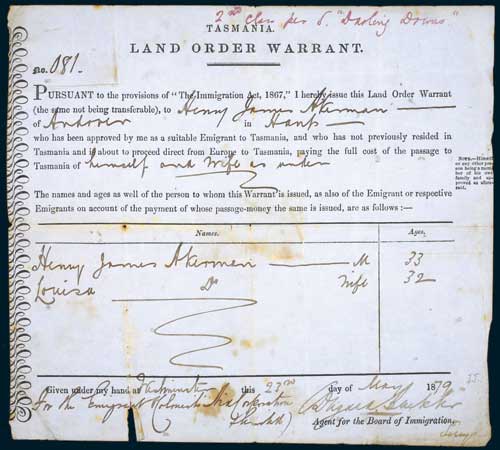 2nd Class per S. "Darling Downs"
TASMANIA.
LAND ORDER WARRANT.
NO. 081.
PURSUANT to the provisions of "The Immigration Act, 1867," I hereby issue this Land Order Warrant
(the same not being transferable), to Henry James Akerman
of Andover in Hants
who has been approved by me as a suitable Emigrant to Tasmania, and who has not previously resided in
Tasmania and is about to proceed direct from Europe to Tasmania, paying the full cost of the passage to
Tasmania of himself and Wife as under
NOTE.—Himself
or any other per-
son being a mem-
ber of his own
family and ap-
proved as afore-
said.
The names and ages as well of the person to whom this Warrant is issued, as also of the Emigrant or respective
Emigrants on account of the payment of whose passage-money the same is issued, are as follows:—
Names. Ages,
Henry James Akerman M 33
Louisa Do Wife 32
Given under my hand at Westminster this 23rd day of May 1879
For the Emigrant & Colonists Aid Corporation
(Limited)
Agent for the Board of Immigration.